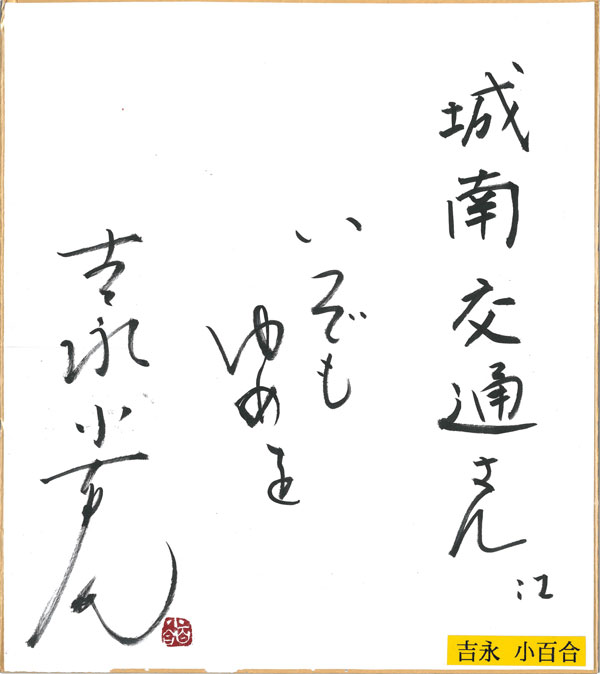 城南交通さん江
いつでも
ゆめを
吉永小百合
小百合
吉永 小百合